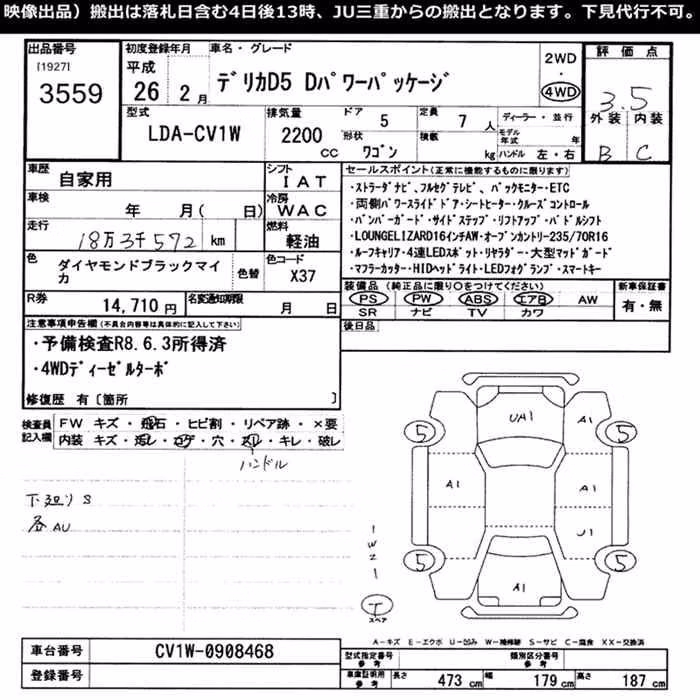 映像出品）搬出は落札日含む4日後13時、JU三重からの搬出となります。下見代行不可。
出品番号 初度登録年月 車名・グレード 評価点
[1927] 平成 2WD・4WD
3559 26 2月 デリカD5 Dパワーパッケージ 3.5
型式 排気量 ドア 5 定員 7人 ディーラー・並行 外装 内装
LDA-CV1W 2200cc 形状 ワゴン 積載 kg モデル年式 年 B C
ハンドル 左・右
車歴 自家用 シフト IAT セールスポイント(正常に機能するものに限ります)
車検 年 月( 日) 冷房 WAC ・ストラーダナビ、フルセグテレビ、バックモニター・ETC
・両側パワースライドドア・シートヒーター・クルーズコントロール
走行 18万3千572km 燃料 軽油 ・バンパーガード・サイドステップ・リフトアップ・パドルシフト
・LOUNGELIZARD16インチAW・オープンカントリー235/70R16
色 ダイヤモンドブラックマイカ 色替 色コード X37 ・ルーフキャリア・4連LEDスポット・リヤラダー・大型マッドガード
・マフラーカッター・HIDヘッドライト・LEDフォグランプ・スマートキー
R券 14,710円 名変通知期限 月 日 装備品(純正品に限り○をつけてください) 新車保証書
PS PW ABS エアB AW 有・無
SR ナビ TV カワ
注意事項申告欄(不具合内容等は具体的に記入して下さい) 後日品
・予備検査R8.6.3所得済
・4WDディーゼルターボ
修復歴 有〔箇所 〕
検査員記入欄 FW キズ・飛石・ヒビ割・リペア跡・×要
内装 キズ・汚レ・コゲ・穴・スレ・キレ・破レ
ハンドル
下廻りS
各AU
UA1 A1
5 5
A1 A1
U1
5 5
A1
1
W2
1
T
スペア
A-キズ E-エクボ U-凹み W-補修跡 S-サビ C-腐食 XX-交換済
車台番号 CV1W-0908468 型式指定番号 参考 類別区分番号 参考
登録番号 車庫証明用 参考 長さ 473cm 幅 179cm 高さ 187cm